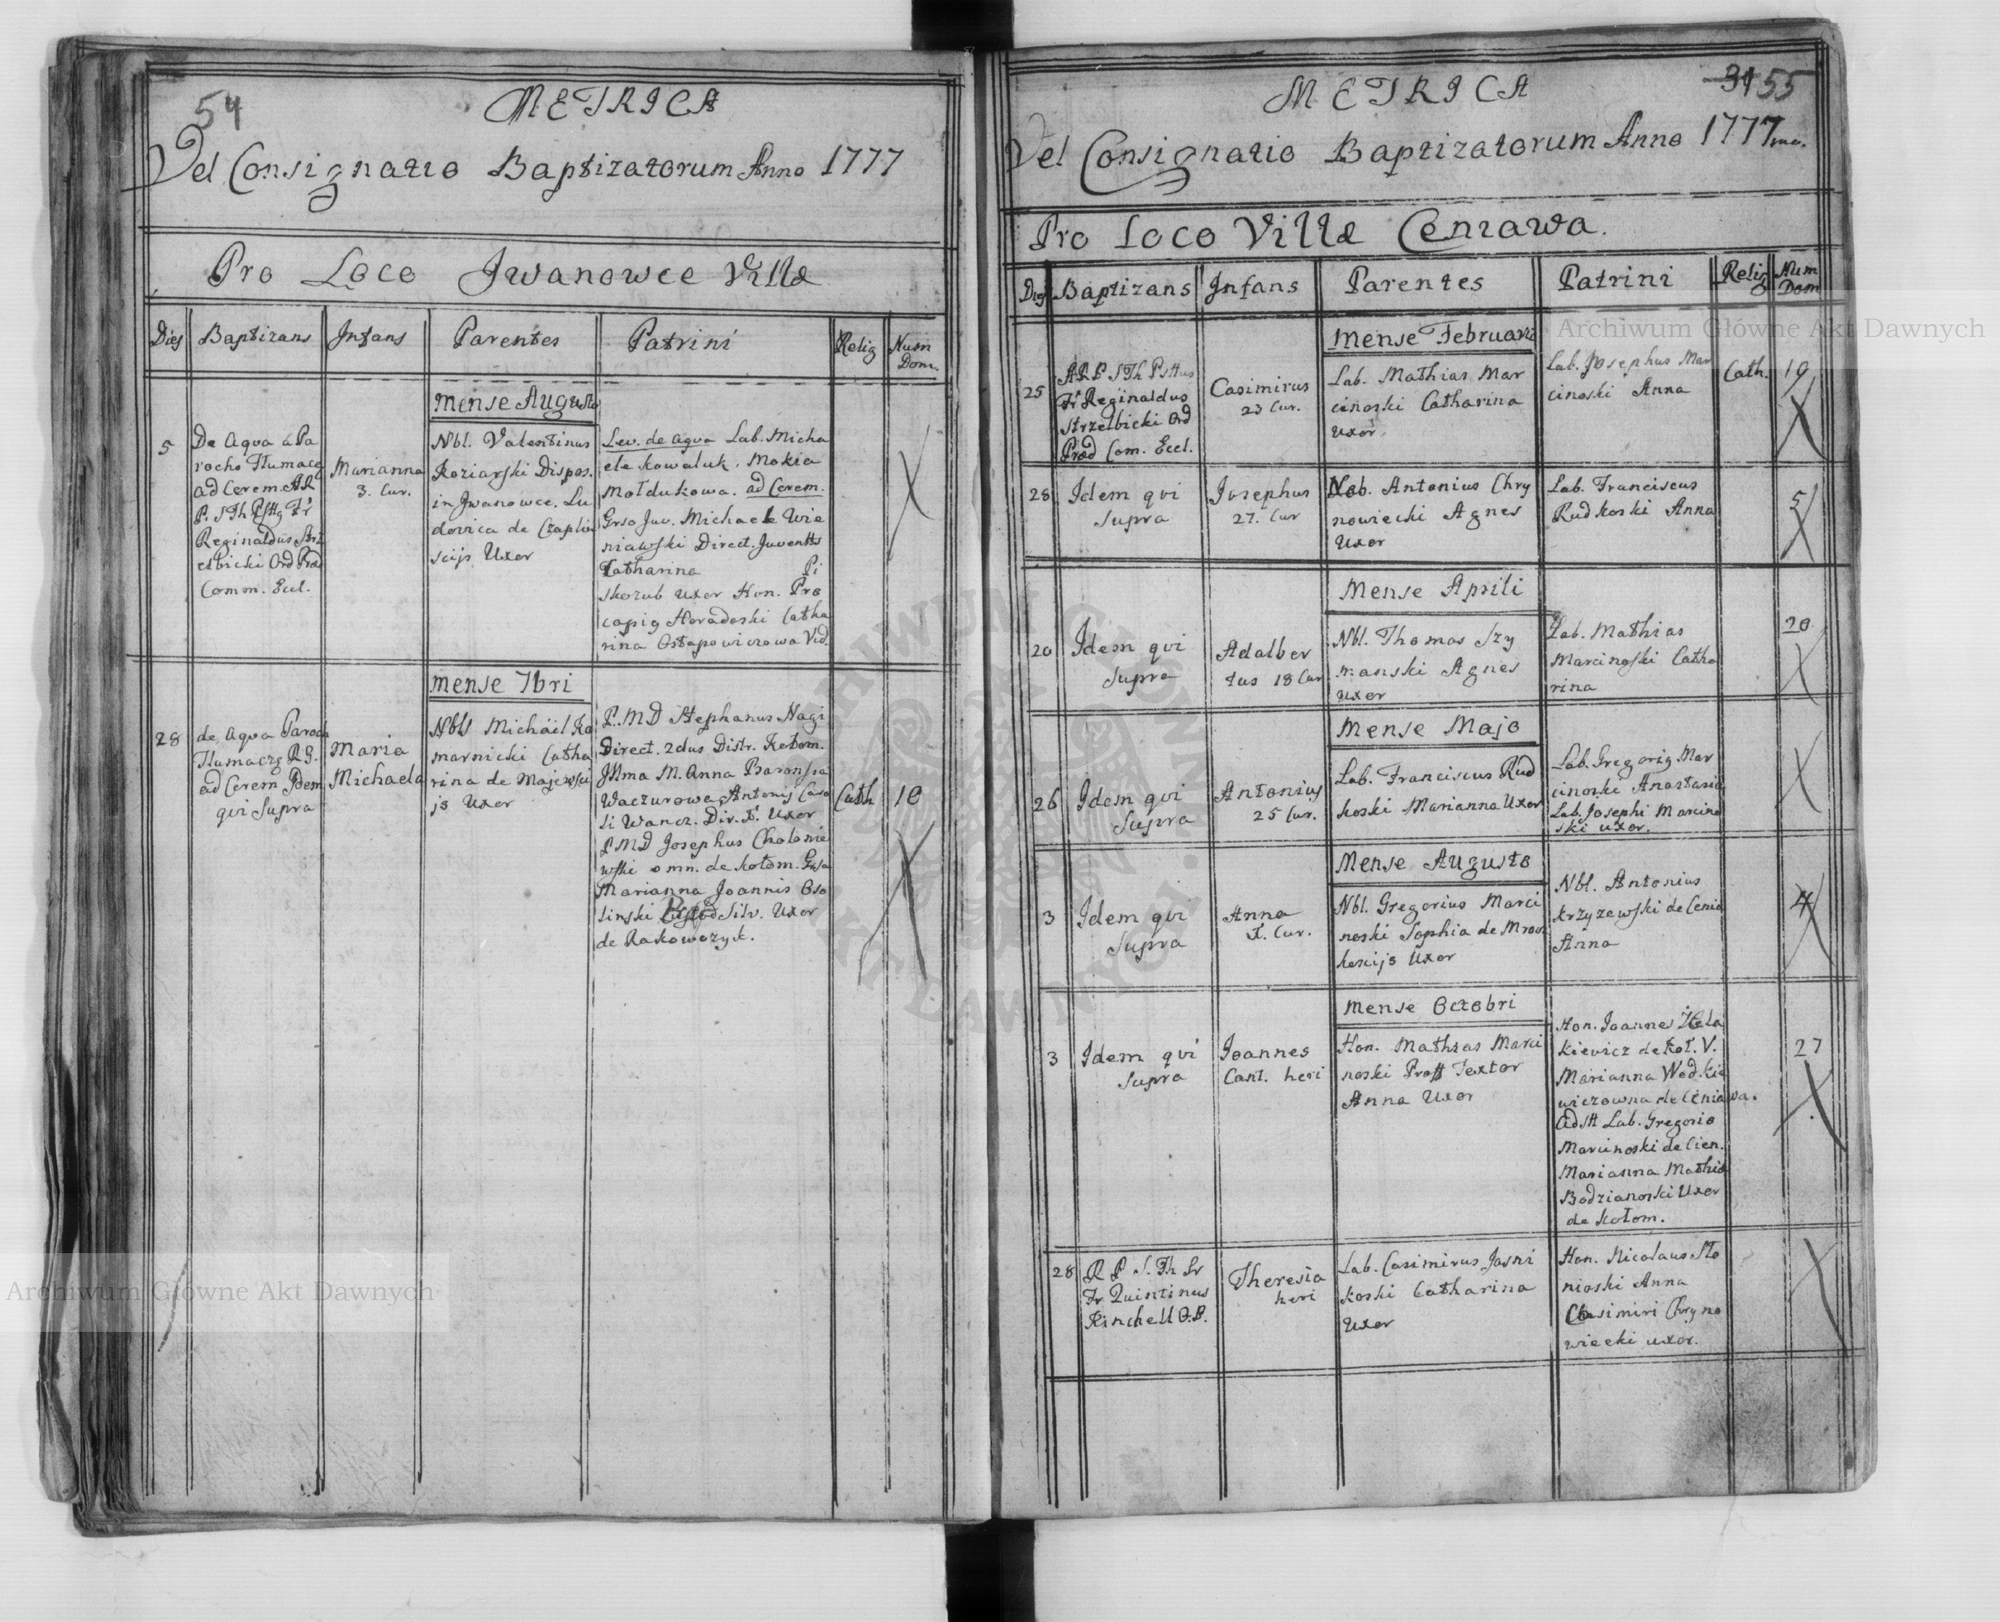 54
METRICA
Vel Consignatio Baptizatorum Anno 1777
Pro Loco Jwanowce Villæ
Dies Baptizans Infans Parentes Patrini Relig Num Dom.
Mense Augusto
5
De aqua a Pa
rocho Tlumacz
ad Cerem. AR
P. STh Psttg Fr
Reginaldus Strz
elbicki Ord Præd
Comm. Eccl.
Marianna
3. Cur.
Nbl. Valentinus
Koziarski Dispos.
in Jwanowce. Lu
dovica de Czaplin
scijs Uxor
Lev. de aqua Lab. Micha
ele Kowaluk. Mokia
Mołdukowa. ad Cerem.
Grso Juv. Michaele Wie
niawski Direct. Juventts
Catharina Pi
skozub uxor Hon. Pro
copig Horadeski Catha
rina Ostapowiczowa Vid.
Mense 7bri
28
de aqua Paroch
Tlumaczg R.G.
ad Cerem Idem
qvi Supra
Maria
Michaela
Nbls Michäel Ko
marnicki Catha
rina de Majewsci
js Uxor
P.MD Stephanus Nagi
Direct. 2dus Distr. Kołom.
Jllma M. Anna Baronssa
Waczurowa Antonij Caro
li Wancz. Dir. Uxor
P.MD Josephus Cholonie
wski omn. de Kołom. Grsa
Marianna Joannis Oso
linski Silv. Uxor
de Rakowczyk.
Cath
10
3155
METRICA
Vel Consignatio Baptizatorum Anno 1777mo.
Pro Loco Villæ Ceniawa.
Dies Baptizans Infans Parentes Patrini Relig Num Dom
Mense Februario
25
ARP STh Psttus
Fr Reginaldus
Strzelbicki Ord
Præd Com. Eccl.
Casimirus
23 Cur.
Lab. Mathias Mar
cinoski Catharina
uxor
Lab. Josephus Mar
cinoski Anna
Cath.
19
28
Idem qvi
Supra
Josephus
27. Cur
Lab. Antonius Chry
nowiecki Agnes
Uxor
Lab. Franciscus
Rudkoski Anna
5
Mense Aprili
20
Idem qvi
Supra
Adalber
tus 18 Cur
Nbl. Thomas Szy
manski Agnes
uxor
Lab. Mathias
Marcinoski Catha
rina
20
Mense Majo
26
Idem qvi
Supra
Antonius
25 Cur.
Lab. Franciscus Rud
koski Marianna Uxor
Lab. Gregorig Mar
cinoski Anastasia
Lab. Josephi Marcino
ski uxor.
Mense Augusto
3
Idem qvi
Supra
Anna
X. Cur.
Nbl. Gregorius Marci
noski Sophia de Mroz
koscijs Uxor
Nbl. Antonius
Krzyzewski de Cenia
Anna
4
Mense Octobri
3
Idem qvi
Supra
Joannes
Cant. heri
Hon. Mathias Marci
noski Proff Textor
Anna Uxor
Hon. Joannes
kiewicz de Koł. V.
Marianna Wod.kie
wiczowna de Ceniawa.
Adstt Lab. Gregorio
Marcinoski de Cien.
Marianna Mathia
Bodzianoski Uxor
de Kołom.
27
28
R P S. Th Lr
Fr Quintinus
Kinchell O.P.
Theresia
heri
Lab. Casimirus Jasni
koski Catharina
Uxor
Hon. Nicolaus Sto
nioski Anna
Casimiri Chryno
wiecki uxor.
Archiwum Główne Akt Dawnych
Archiwum Główne Akt Dawnych
ARCHIWUM GŁÓWNE AKT DAWNYCH